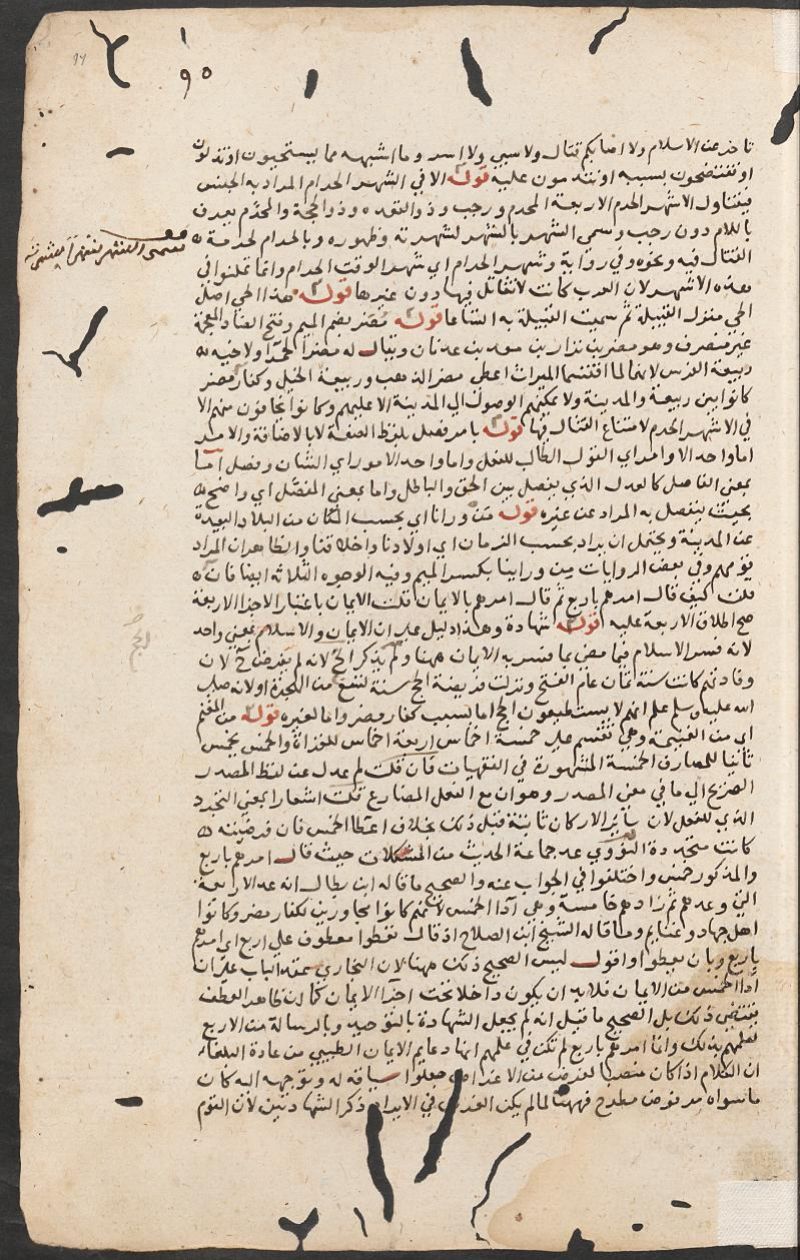 ٩٥
تاخر عن الاسلام ولا اصابكم قتال ولا سبي ولا اسر وما اشبهه مما يستحيون او تذلون
او تفتضحون بسببه او تندمون عليه قوله الا في الشهر الحرام المراد به الجنس
فيتناول الاشهر الحرم الاربعة المحرم ورجب وذو القعده وذو الحجة والمحرم يعرف
باللام دون رجب وسمي الشهر بالشهر لشهرته وظهوره وبالحرام لحرمة
القتال فيه ونحوه وفي رواية وشهر الحرام اي شهر الوقت الحرام وانما تمكنوا في
هذه الاشهر لان العرب كانت لا تقاتل فيها دون غيرها قوله هذا الحي اصل
الحي منزل القبيلة ثم سميت القبيلة به اتساعا قوله مضر بضم الميم وفتح الضاد المعجمة
غير منصرف وهو مضر بن نزار بن معد بن عدنان ويقال له مضر الحمرا ولاخيه
ربيعة الفرس لانهما لما اقتسما الميراث اعطى مضر الذهب وربيعة الخيل وكفار مضر
كانوا بين ربيعة والمدينة ولا يمكنهم الوصول الي المدينة الا عليهم وكانوا يخافون منهم الا
في الاشهر الحرم لامتناع القتال فيها قوله بامر فصل بلفظ الصفة لا بالاضافة والامر
اما واحد الاوامر اي القول الطالب للفعل واما واحد الامور اي الشان وفصل اما
بمعني الفاصل كالعدل الذي يفصل بين الحق والباطل واما بمعني المفصل اي واضح
بحيث ينفصل به المراد عن غيره قوله من ورانا اي بحسب المكان من البلاد البعيدة
عن المدينة ويحتمل ان يراد بحسب الزمان اي اولادنا واخلافنا والظاهر ان المراد
قومهم وفي بعض الروايات من وراينا بكسر الميم وفيه الوجوه الثلاثة ايضا فان
قلت كيف قال امرهم باربع ثم قال امرهم بالايمان قلت الايمان باعتبار الاجزا الاربعة
صح اطلاق الاربعة عليه قوله شهادة وهذا دليل على ان الايمان والاسلام بمعني واحد
لانه فسر الاسلام فيما مضي بما فسر به الايمان ههنا ولم يذكر الحج لانه لم يفرض ح لان
وفادتهم كانت سنة ثمان عام الفتح ونزلت فريضة الحج سنة تسع من الهجرة او لانه صلي
الله عليه وسلم علم انهم لا يستطيعون الحج اما بسبب كفار مضر واما لغيره قوله من المغنم
اي من الغنيمة وهي تنقسم على خمسة اخماس اربعة اخماس للغزاة والخمس يخمس
ثانيا للمصارف الخمسة المشهورة في الفقهيات فان قلت لم عدل عن لفظ المصدر
الصريح الي ما في معني المصدر وهو ان مع الفعل المضارع قلت اشعارا بمعني التجدد
الذي للفعل لان سائر الاركان ثابتة قبل ذلك بخلاف اعطا الخمس فان فرضيته
كانت متجددة النووي عد جماعة الحديث من المشكلات حيث قال امرهم باربع
والمذكور خمس واختلفوا في الجواب عنه والصحيح ما قاله ابن بطال انه عد الاربعة
التي وعدهم ثم زادهم خامسة وهي ادا الخمس لانهم كانوا مجاورين لكفار مضر وكانوا
اهل جهاد وغنايم وما قاله الشيخ ابن الصلاح اذ قال تعطوا معطوف علي اربع اي امرهم
باربع وبان يعطوا واقول ليس الصحيح ذلك ههنا لان البخاري عقد الباب علي ان
ادا الخمس من الايمان فلا بد ان يكون داخلا تحت اجزا الايمان كما ان ظاهر العطف
يقتضي ذلك بل الصحيح ما قيل انه لم يجعل الشهادة بالتوحيد وبالرسالة من الاربع
لعلمهم بذلك وانما امرهم باربع لم تكن في علمهم انها دعايم الايمان الطيبي من عادة البلغاء
ان الكلام اذا كان منصبا لغرض من الاغراض جعلوا سياقه له وتوجهه اليه كان
ما سواه مرفوض مطرح فههنا لما لم يكن الغرض في الايراد ذكر الشهادتين لان القوم